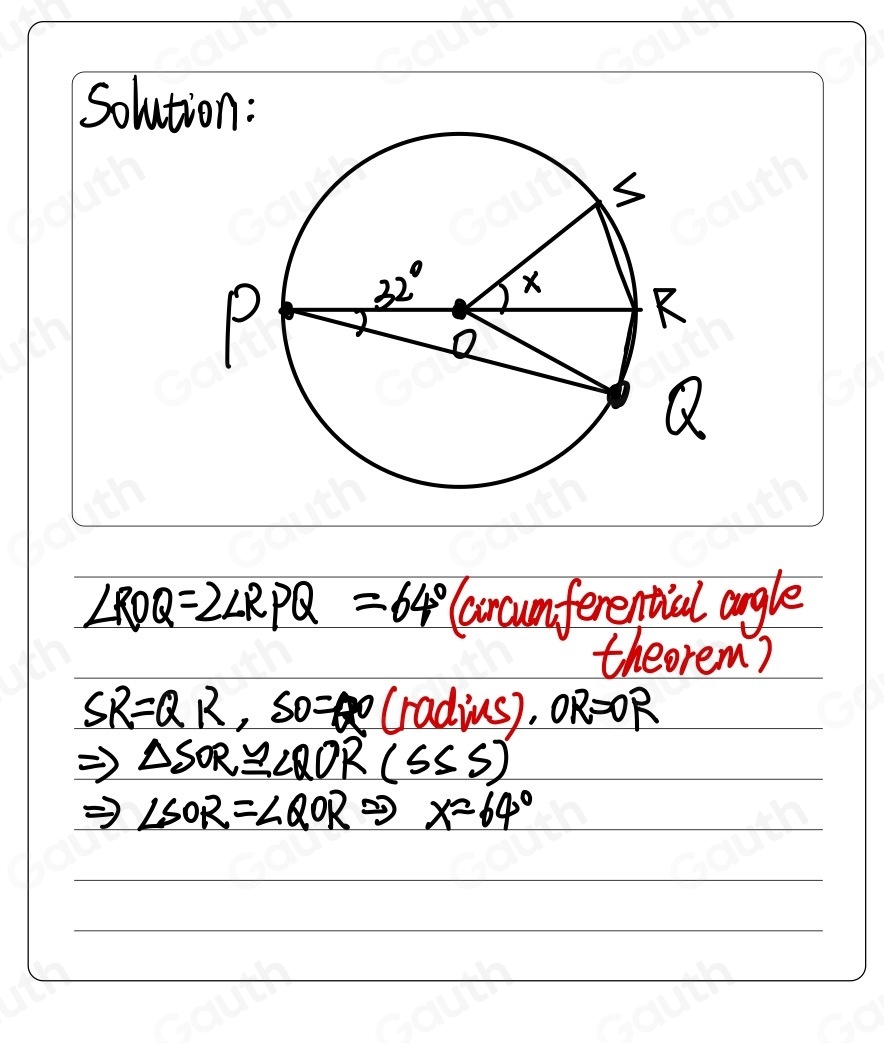 Solution:
S
32°
x
P
R
O
Q
∠ROQ=2∠RPQ =64° (circumferential angle
theorem)
SR=QR, SO=QO (radius), OR=OR
⇒ △SOR≌∠QOR (SSS)
⇒ ∠SOR=∠QOR ⇒ x=64°
Gauth